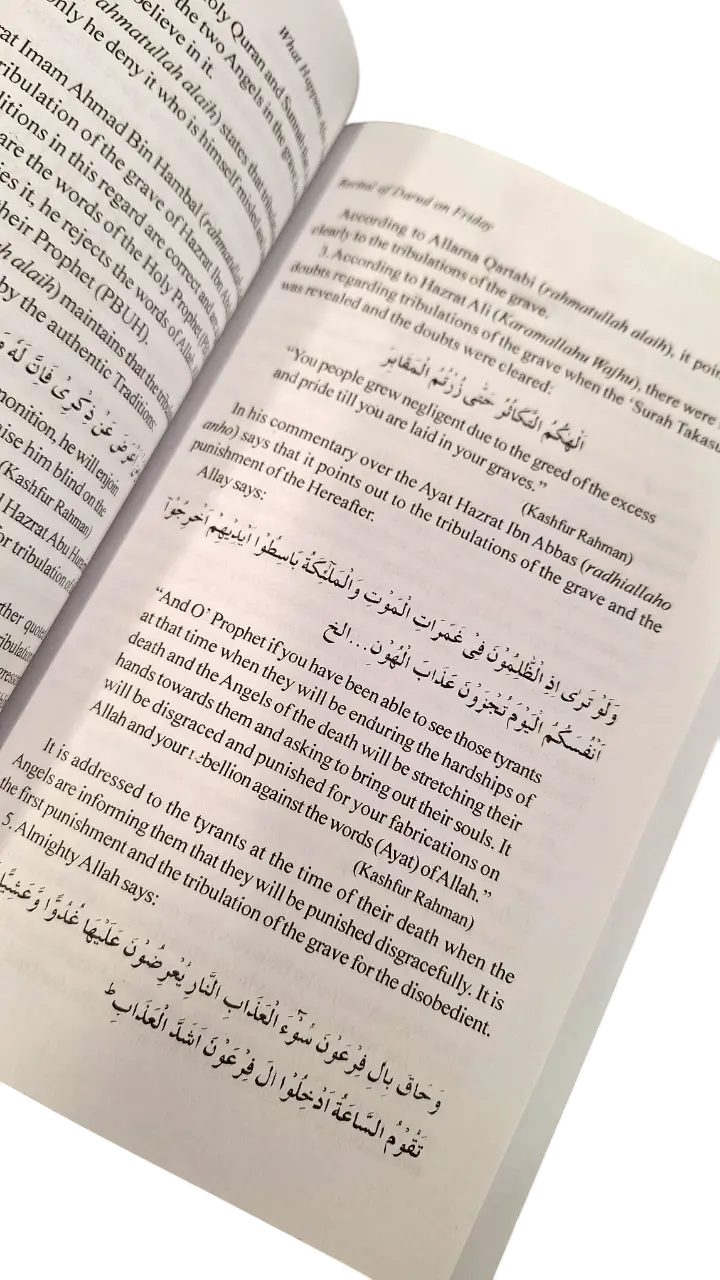 oly Quran and Sunnah
the two Angels in the grave
believe in it.
ahmatullah alaih) states that
only he deny it who is himself misled and
rat Imam Ahmad Bin Hambal (rahmatullah
ribulation of the grave of Hazrat Ibn
ditions in this regard are correct and
are the words of the Holy Prophet
ies it, he rejects the words of Allah
their Prophet (PBUH).
h alaih) maintains that the
by the authentic Traditions
عَنْ ذِكْرِىْ فَاِنَّ لَهٗ
monition, he will enjoin
aise him blind on the
(Kashfur Rahman)
d Hazrat Abu
or tribulation of
ther
ribulation
What Happens
Recital of Darud on Friday
According to Allama Qartabi (rahmatullah alaih), it poin
clearly to the tribulations of the grave.
3. According to Hazrat Ali (Karamallahu Wajhu), there were
doubts regarding tribulations of the grave when the 'Surah Takasu
was revealed and the doubts were cleared:
اَلْهٰىكُمُ التَّكَاثُرُ حَتّٰى زُرْتُمُ الْمَقَابِرَ
"You people grew negligent due to the greed of the excess
and pride till you are laid in your graves."
(Kashfur Rahman)
In his commentary over the Ayat Hazrat Ibn Abbas (radhiallaho
anho) says that it points out to the tribulations of the grave and the
punishment of the Hereafter.
Allay says:
وَلَوْ تَرٰى اِذِ الظّٰلِمُوْنَ فِىْ غَمَرَاتِ الْمَوْتِ وَالْمَلٰٓئِكَةُ بَاسِطُوْا اَيْدِيْهِمْ اَخْرِجُوْآ
اَنْفُسَكُمُ اَلْيَوْمَ تُجْزَوْنَ عَذَابَ الْهُوْنِ...الخ
"And O' Prophet if you have been able to see those tyrants
at that time when they will be enduring the hardships of
death and the Angels of the death will be stretching their
hands towards them and asking to bring out their souls. It
will be disgraced and punished for your fabrications on
Allah and your rebellion against the words (Ayat) of Allah."
(Kashfur Rahman)
It is addressed to the tyrants at the time of their death when the
Angels are informing them that they will be punished disgracefully. It is
the first punishment and the tribulation of the grave for the disobedient.
5. Almighty Allah says:
وَحَاقَ بِالِ فِرْعَوْنَ سُوْٓءَ الْعَذَابِ النَّارِ يُعْرِضُوْنَ عَلَيْهَا غُدُوًّا وَّعَشِيًّا
تَقُوْمُ السَّاعَةُ اَدْخِلُوْا الَ فِرْعَوْنَ اَشَدَّ الْعَذَابِ ط